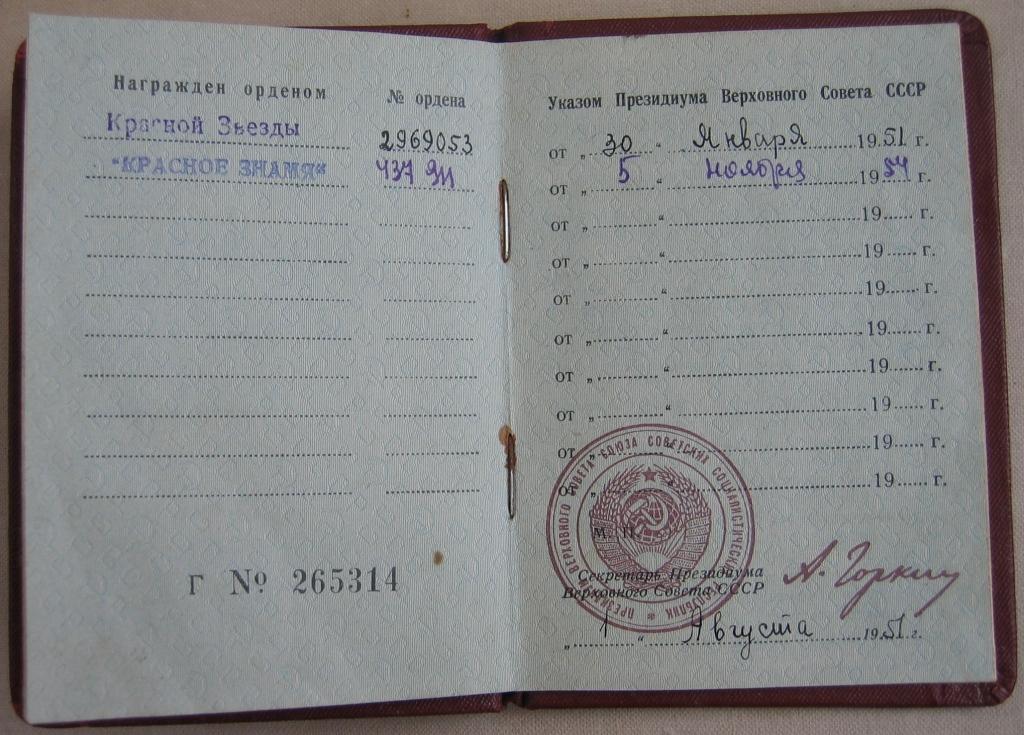 Награжден орденом № ордена
Красной Звезды 2969053
"КРАСНОЕ ЗНАМЯ"
Г № 265314
Указом Президиума Верховного Совета СССР
от „ 30 “ Января 1951 г.
от „ 5 “ ноября 1954 г.
от „ “ 19 г.
от „ “ 19 г.
от „ “ 19 г.
от „ “ 19 г.
от „ “ 19 г.
от „ “ 19 г.
от „ “ 19 г.
от „ “ 19 г.
М. П.
Секретарь Президиума
Верховного Совета СССР
А. Горкин
„ 1 “ Августа 1951 г.